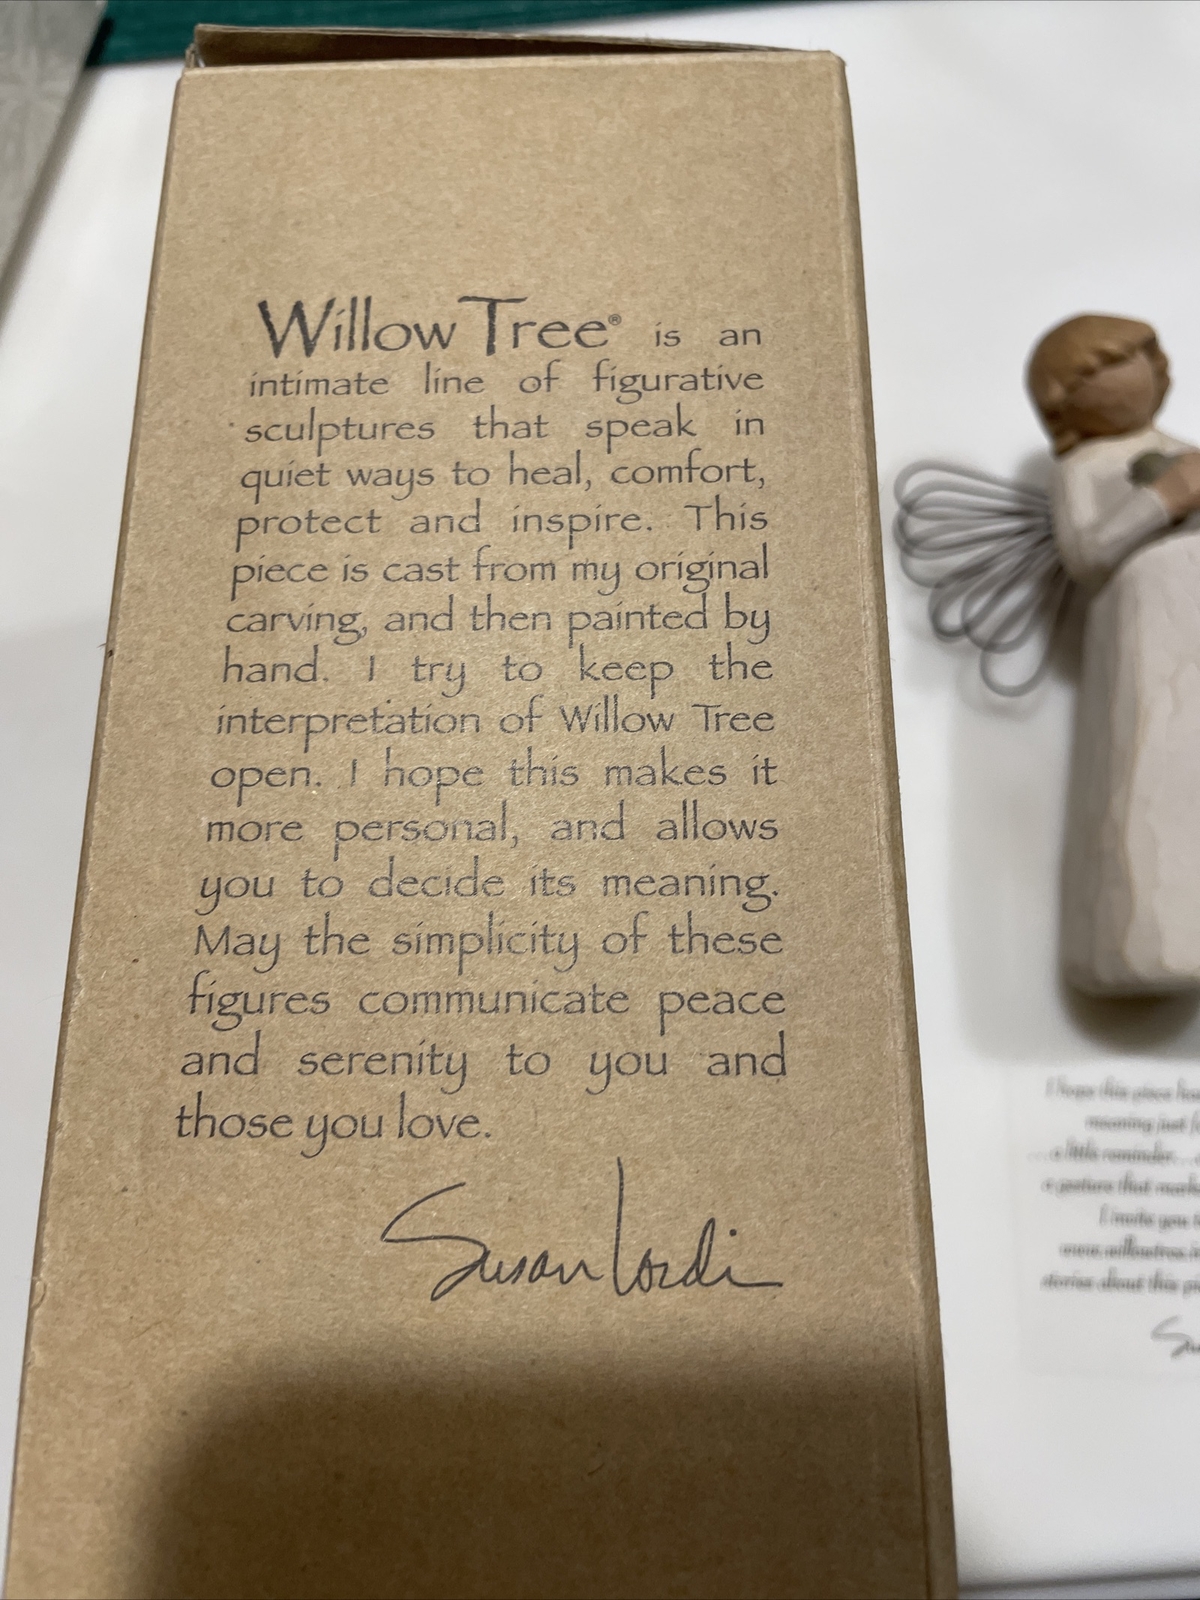 Willow Tree® is an
intimate line of figurative
sculptures that speak in
quiet ways to heal, comfort,
protect and inspire. This
piece is cast from my original
carving, and then painted by
hand. I try to keep the
interpretation of Willow Tree
open. I hope this makes it
more personal, and allows
you to decide its meaning.
May the simplicity of these
figures communicate peace
and serenity to you and
those you love.
Susan Lordi
I hope this piece
meaning just
...a little reminder...
a gesture that
I invite you
stories about this